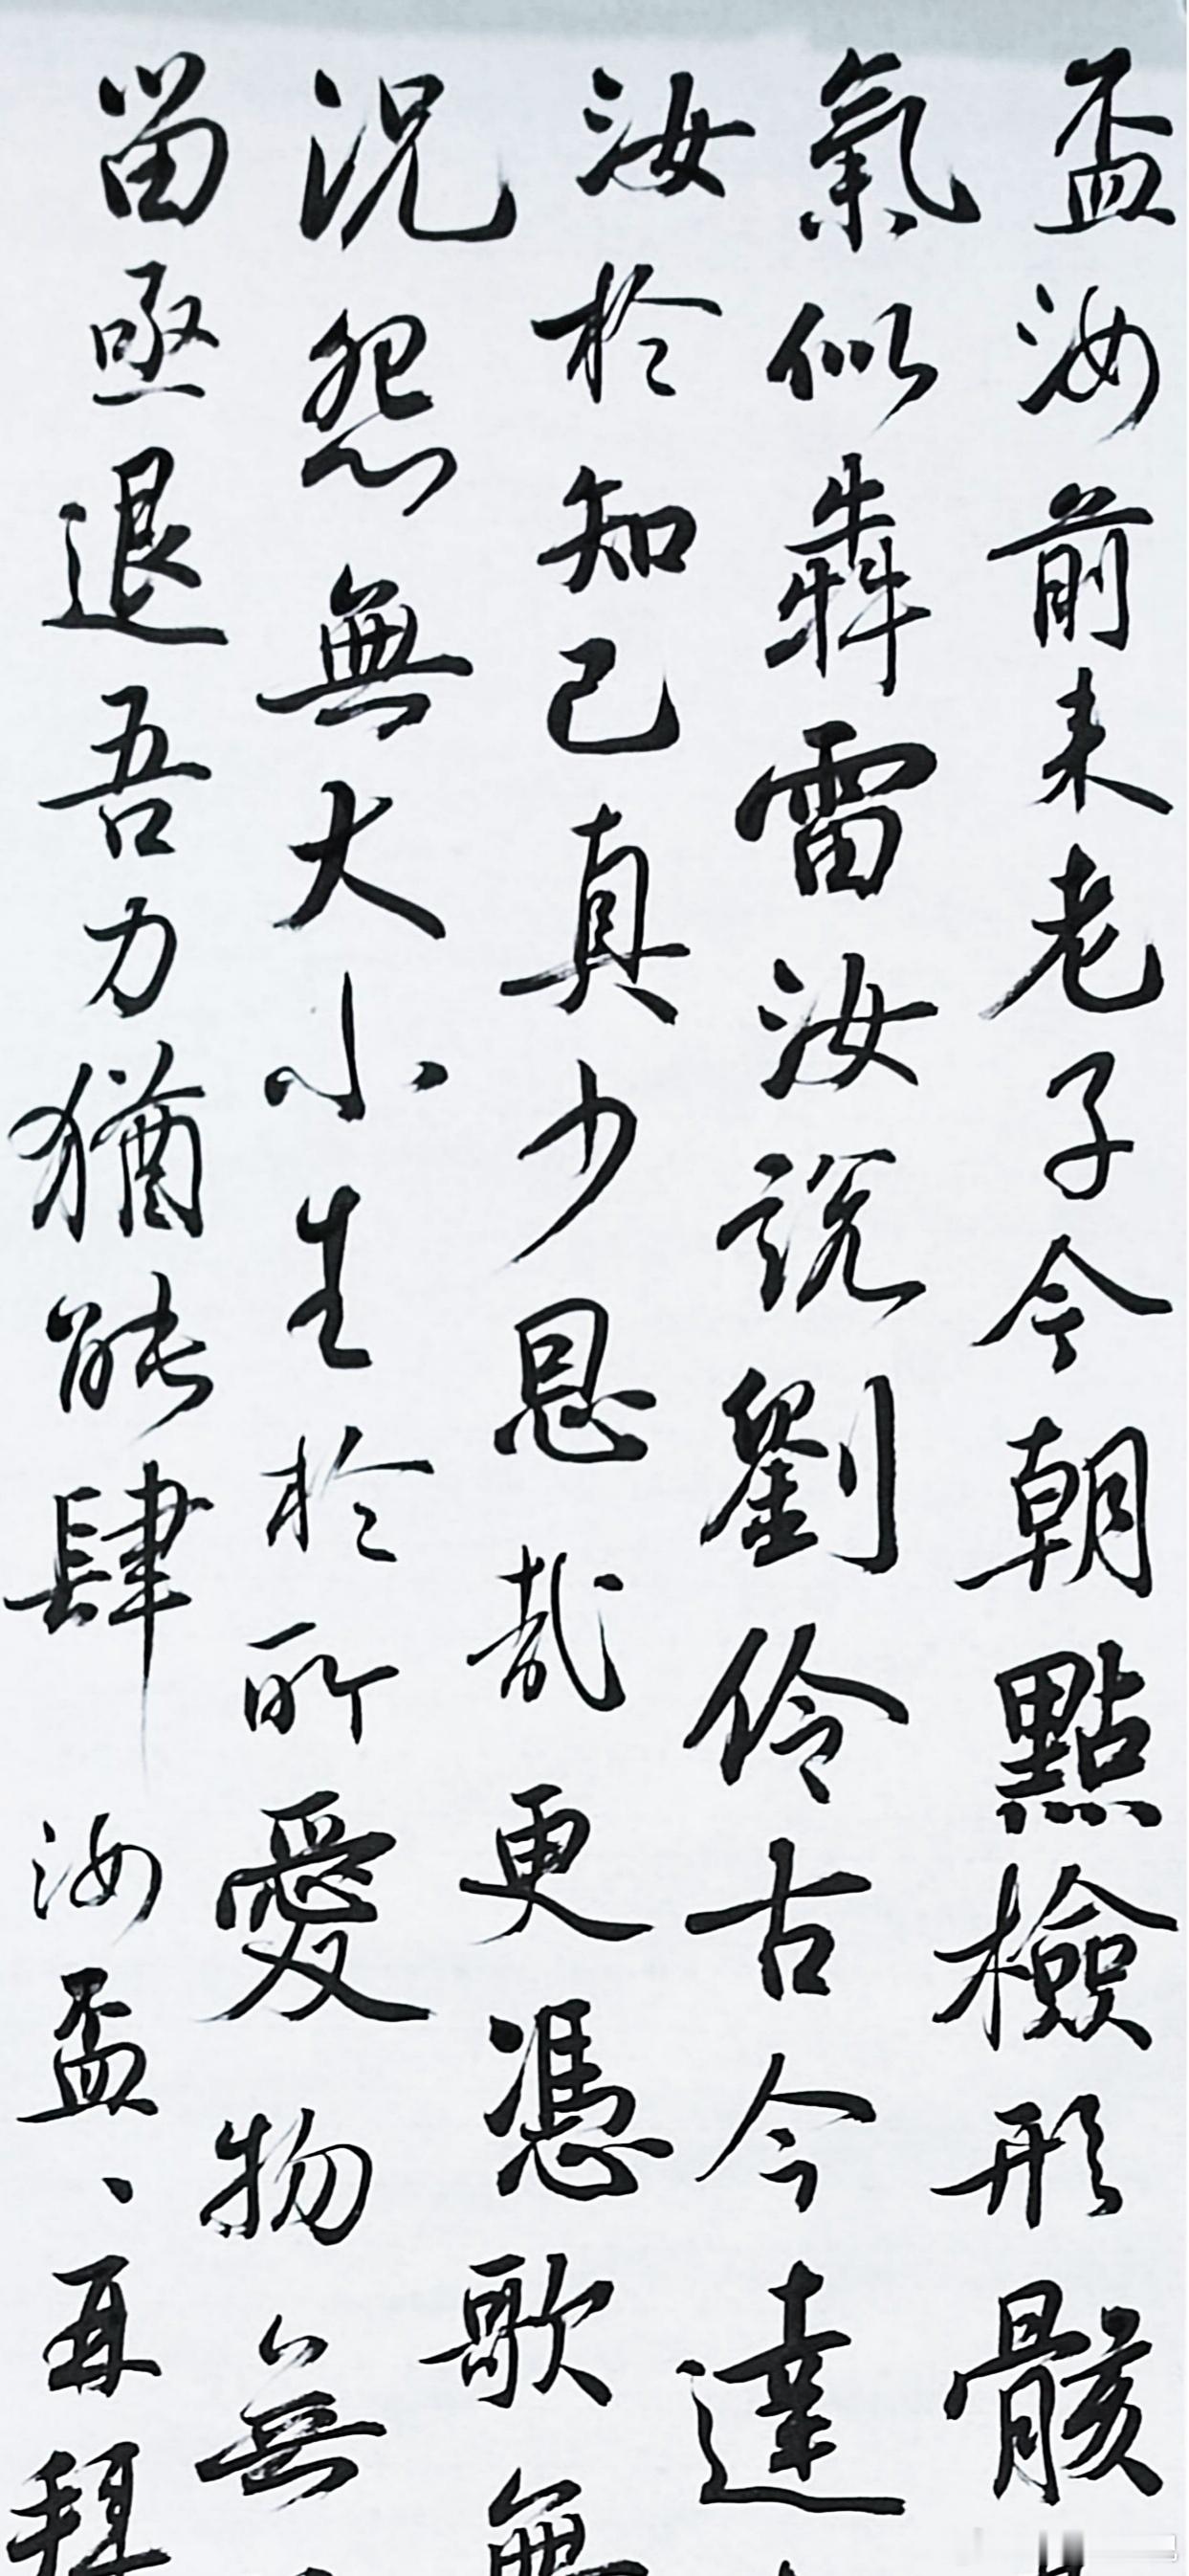 盃汝前来老子今朝點檢形骸
氣似犇雷汝說劉伶古今達
汝於知己真少恩哉更憑歌無
況怨無大小生於所愛物無
留亟退吾力猶能肆汝盃、再拜